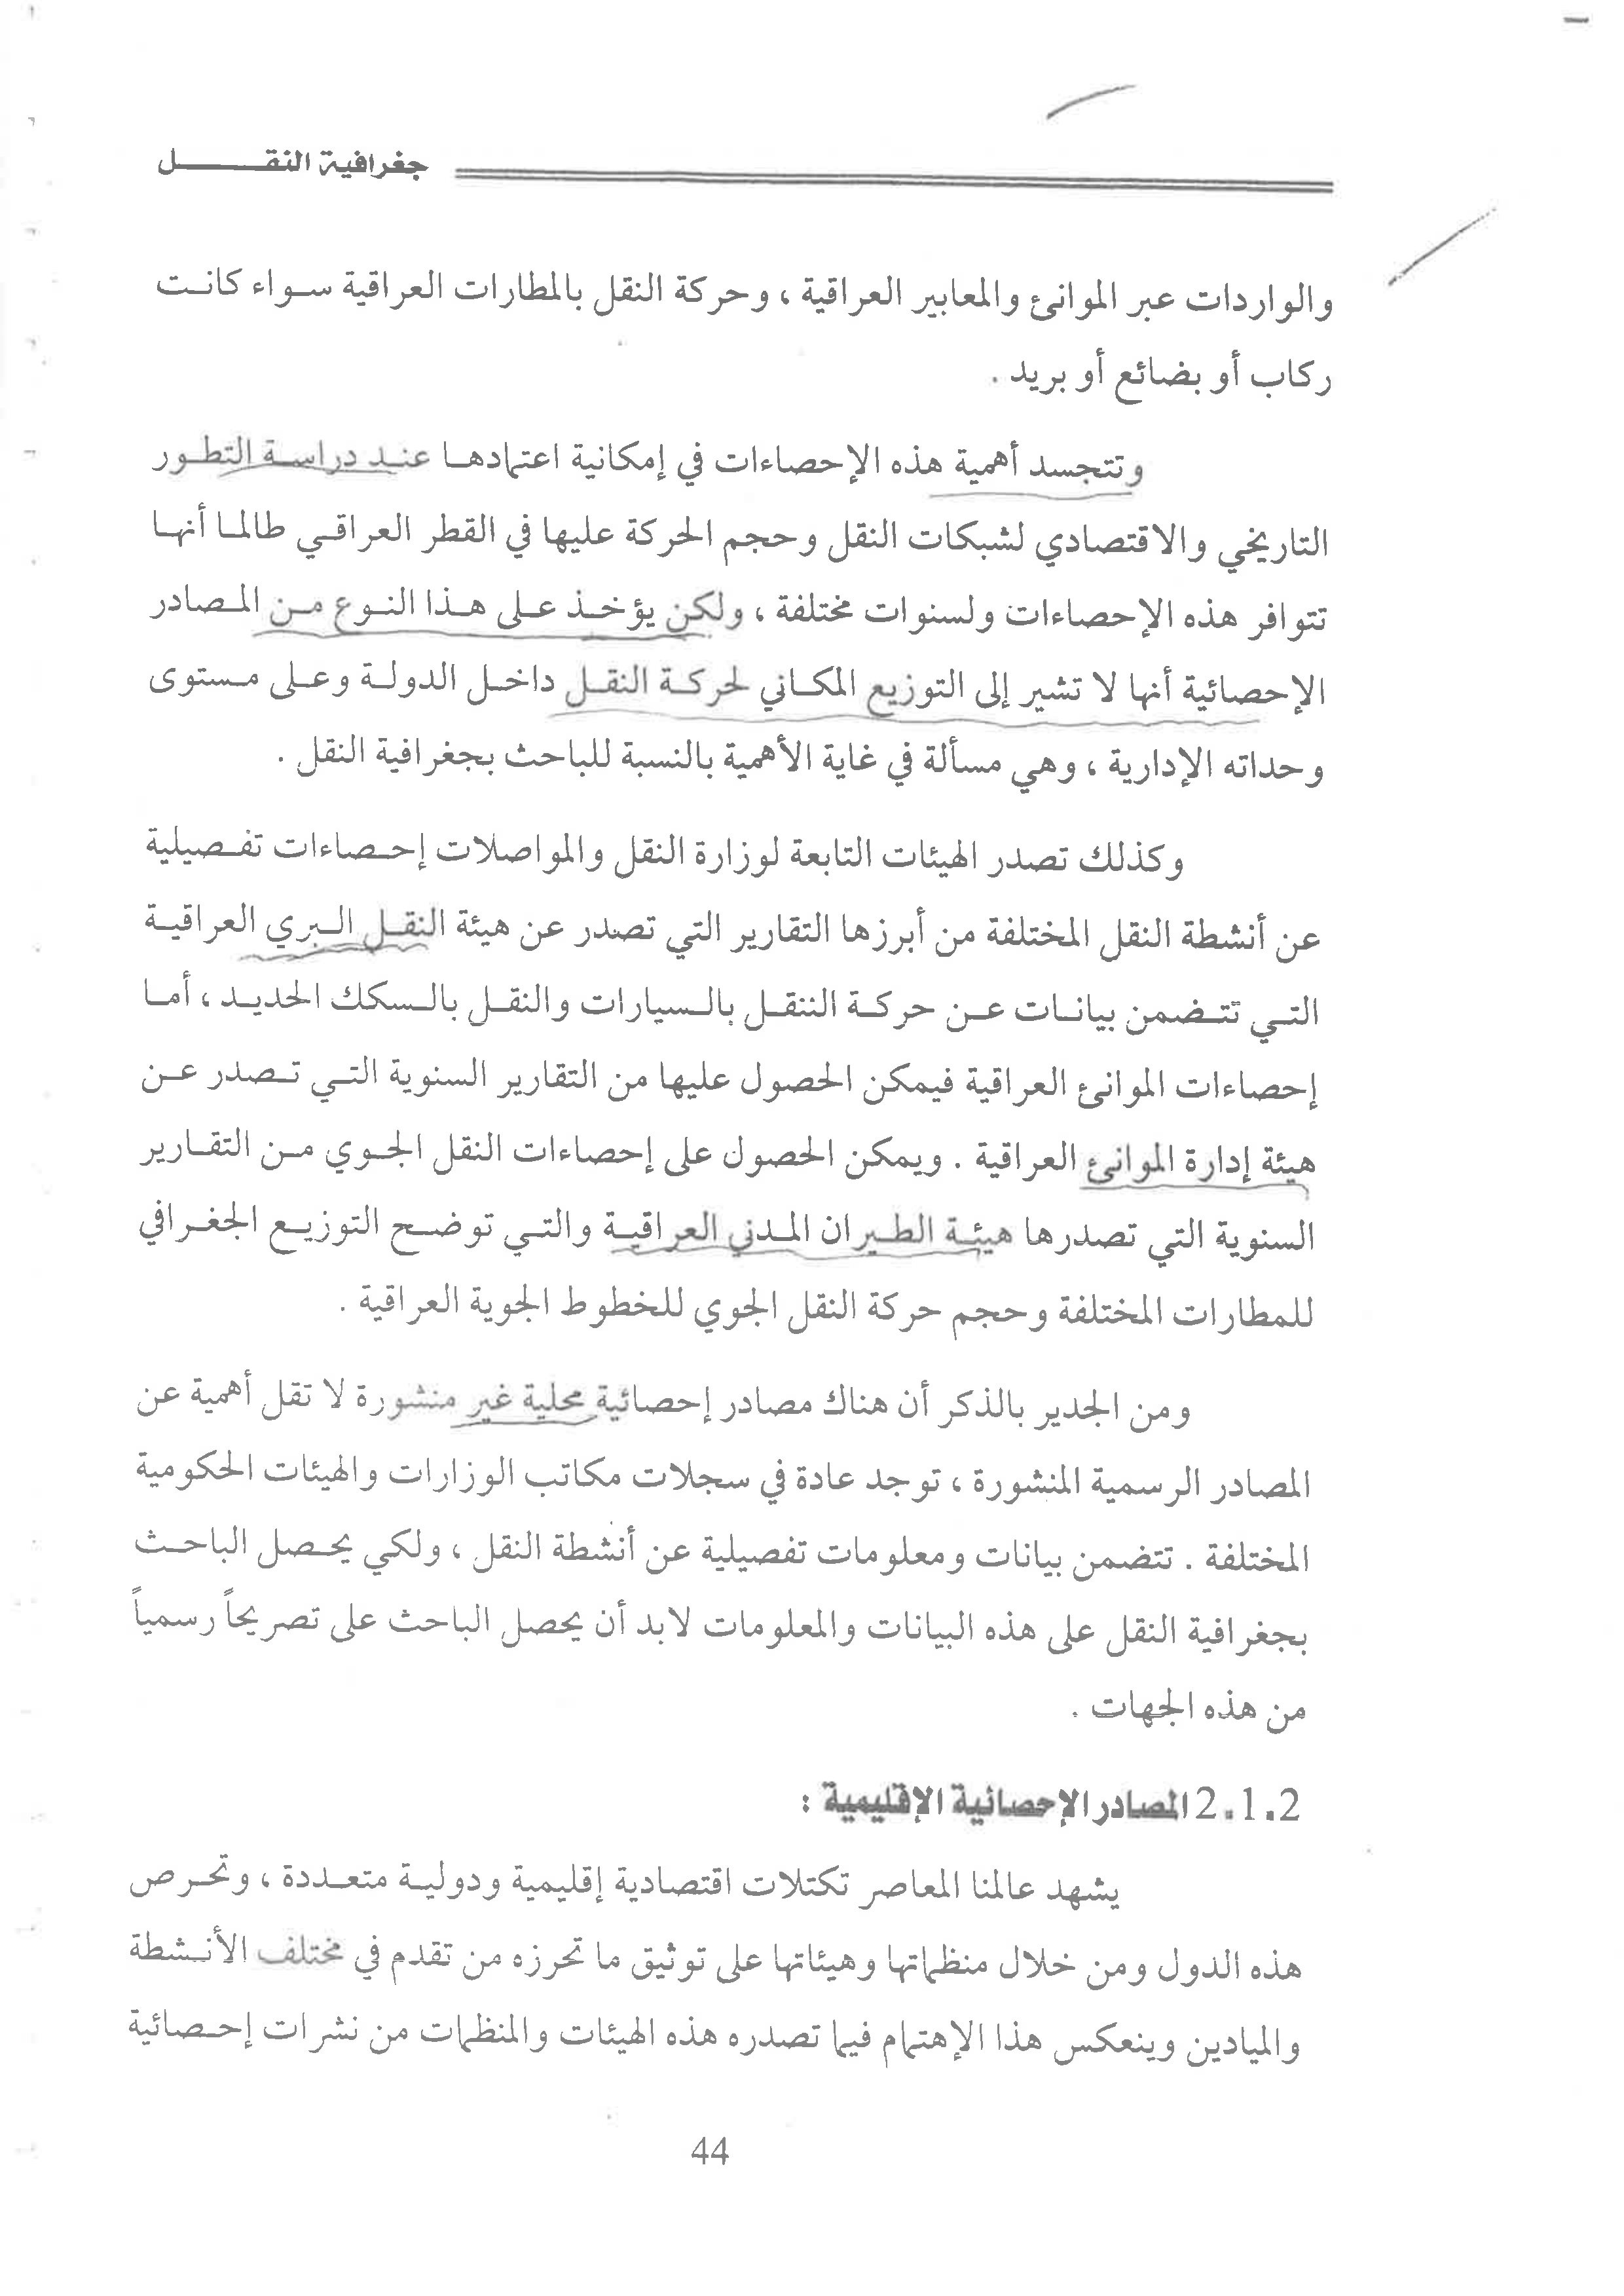 جغرافية النقـــــــل
والواردات عبر الموانئ والمعابير العراقية ، وحركة النقل بالمطارات العراقية سواء كانت
ركاب أو بضائع أو بريد .
وتتجسد أهمية هذه الإحصاءات في إمكانية اعتمادها عند دراسة التطور
التاريخي والاقتصادي لشبكات النقل وحجم الحركة عليها في القطر العراقي طالما أنها
تتوافر هذه الإحصاءات ولسنوات مختلفة ، ولكن يؤخذ على هذا النوع من المصادر
الإحصائية أنها لا تشير إلى التوزيع المكاني لحركة النقل داخل الدولة وعلى مستوى
وحداته الإدارية ، وهي مسألة في غاية الأهمية بالنسبة للباحث بجغرافية النقل .
وكذلك تصدر الهيئات التابعة لوزارة النقل والمواصلات إحصاءات تفصيلية
عن أنشطة النقل المختلفة من أبرزها التقارير التي تصدر عن هيئة النقل البري العراقية
التي تتضمن بيانات عن حركة الننقل بالسيارات والنقل بالسكك الحديد ، أما
إحصاءات الموانئ العراقية فيمكن الحصول عليها من التقارير السنوية التي تصدر عن
هيئة إدارة الموانئ العراقية . ويمكن الحصول على إحصاءات النقل الجوي من التقارير
السنوية التي تصدرها هيئة الطيران المدني العراقية والتي توضح التوزيع الجغرافي
للمطارات المختلفة وحجم حركة النقل الجوي للخطوط الجوية العراقية .
ومن الجدير بالذكر أن هناك مصادر إحصائية محلية غير منشورة لا تقل أهمية عن
المصادر الرسمية المنشورة ، توجد عادة في سجلات مكاتب الوزارات والهيئات الحكومية
المختلفة . تتضمن بيانات ومعلومات تفصيلية عن أنشطة النقل ، ولكي يحصل الباحث
بجغرافية النقل على هذه البيانات والمعلومات لابد أن يحصل الباحث على تصريحاً رسمياً
من هذه الجهات .
2.1.2 المصادر الإحصائية الإقليمية :
يشهد عالمنا المعاصر تكتلات اقتصادية إقليمية ودولية متعددة ، وتحرص
هذه الدول ومن خلال منظماتها وهيئاتها على توثيق ما تحرزه من تقدم في مختلف الأنشطة
والميادين وينعكس هذا الإهتمام فيما تصدره هذه الهيئات والمنظمات من نشرات إحصائية
44